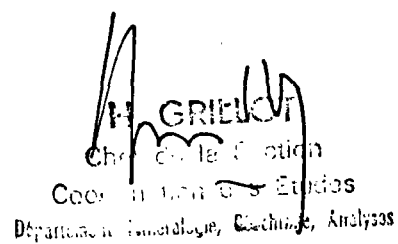 H. GRILLOT
Chef de la Section
Coordination des Etudes
Département Minéralogie, Géochimie, Analyses